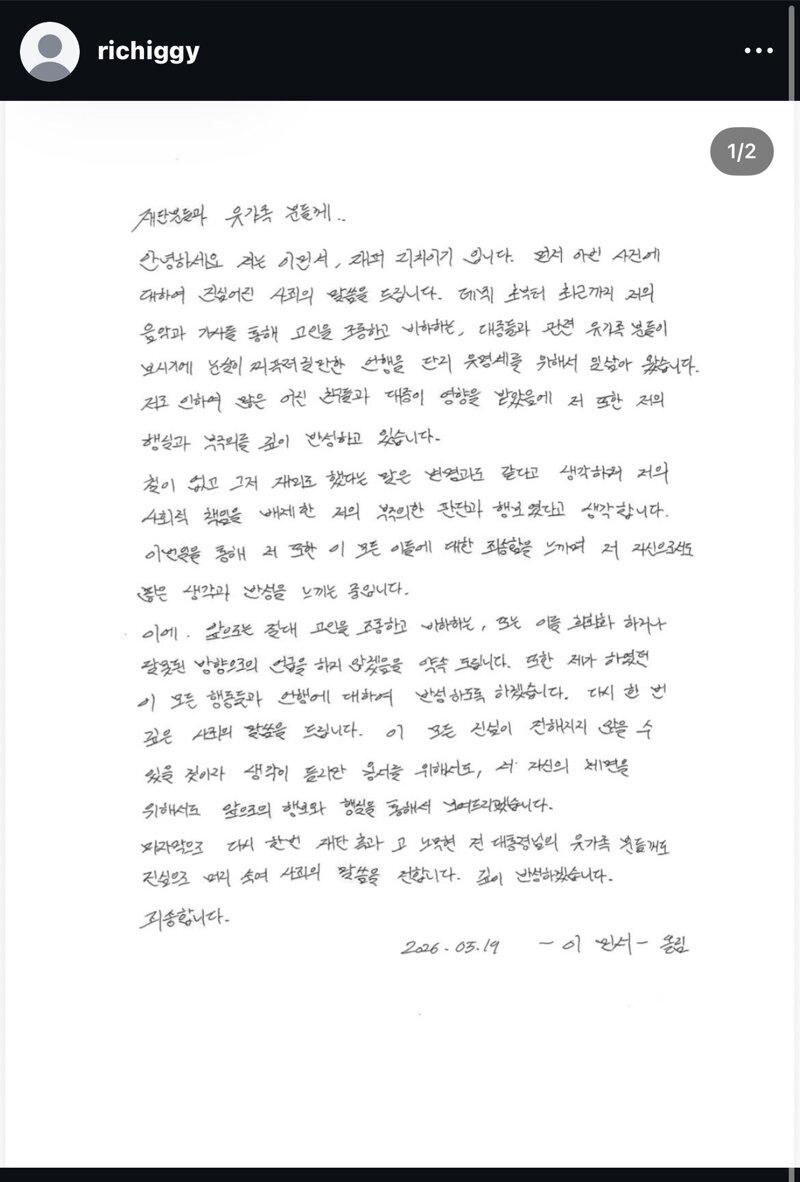 richiggy
1/2
재단분들과 유가족 분들께..
안녕하세요 저는 이민서, 래퍼 리치이기 입니다. 먼저 이번 사건에
대하여 진심어린 사죄의 말씀을 드립니다. 데뷔 초부터 최근까지 저의
음악과 가사를 통해 고인을 조롱하고 비하하는, 대중들과 관련 유가족 분들이
보시기에 눈살이 찌푸려질만한 언행을 단지 유명세를 위해서 일삼아 왔습니다.
저로 인하여 많은 어린 친구들과 대중이 영향을 받았음에 저 또한 저의
행실과 부주의를 깊이 반성하고 있습니다.
철이 없고 그저 재미로 했다는 말은 변명과도 같다고 생각하며 저의
사회적 책임을 배제한 저의 부주의한 판단과 행보였다고 생각합니다.
이번일을 통해 저 또한 이 모든 이들에 대한 죄송함을 느끼며 저 자신으로서도
많은 생각과 반성을 느끼는 중입니다.
이에. 앞으로는 절대 고인을 조롱하고 비하하는, 또는 이를 희화화 하거나
잘못된 방향으로의 언급을 하지 않겠음을 약속 드립니다. 또한 제가 하였던
이 모든 행동들과 언행에 대하여 반성하도록 하겠습니다. 다시 한 번
깊은 사죄의 말씀을 드립니다. 이 모든 진심이 전해지지 않을 수
있을 것이라 생각이 들지만 용서를 위해서도, 저 자신의 체면을
위해서도 앞으로의 행보와 행실을 통해서 보여드리겠습니다.
마지막으로 다시 한번 재단 측과 고 노무현 전 대통령님의 유가족 분들께도
진심으로 머리 숙여 사죄의 말씀을 전합니다. 깊이 반성하겠습니다.
죄송합니다.
2026.05.19 - 이 민서 - 올림